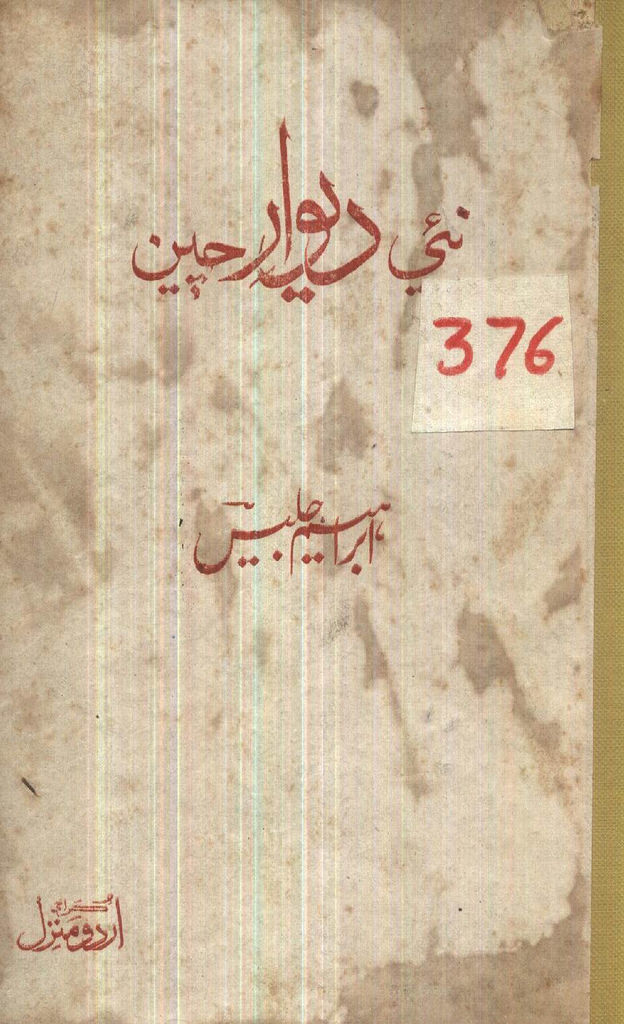 نئی دیوارِ چین
376
ابراہیم جلیس
کراچی
اردو منزل